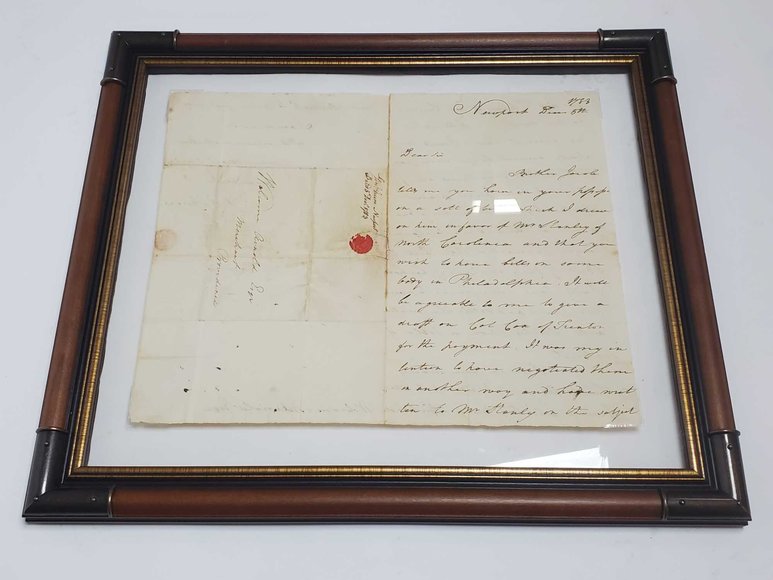 1783
Newport Decr 5th
Dear Sir
Brother Jacob
tells me you have in your possessi
on a sett of bills which I drew
on him in favor of Mr Stanley of
North Carolinia and that you
wish to have bills on some
body in Philadelphia. It will
be agreeable to me to give a
draft on Col Cox of Trenton
for the payment. It was my in
tention to have negotiated them
in another way and have writ
ten to Mr Stanly on the subject
Newport
Decr 1783
Esqr
Merchant
Providence